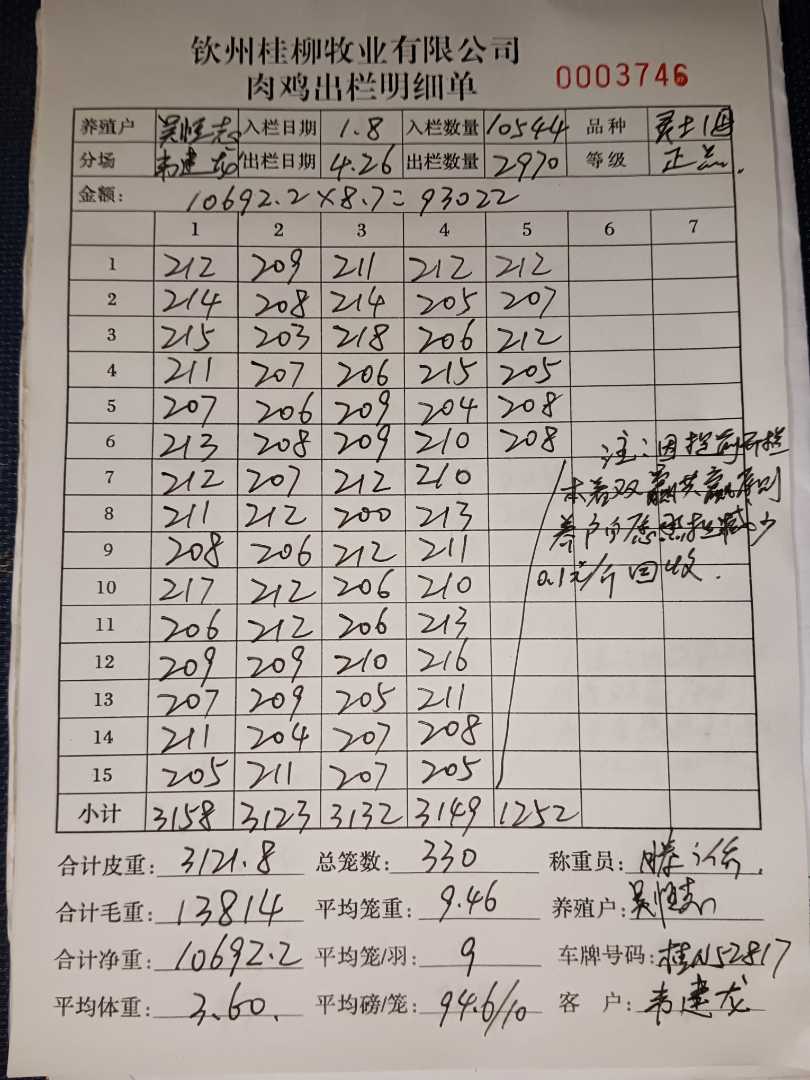 钦州桂柳牧业有限公司
肉鸡出栏明细单 0003746
养殖户 吴恒志 入栏日期 1.8 入栏数量 10544 品种 灵土1号
分场 韦建龙 出栏日期 4.26 出栏数量 2970 等级 正品.
金额: 10692.2×8.7=93022
1 2 3 4 5 6 7
1 212 209 211 212 212
2 214 208 214 205 207
3 215 203 218 206 212
4 211 207 206 215 205
5 207 206 209 204 208
6 213 208 209 210 208
7 212 207 212 210
8 211 212 200 213
9 208 206 212 211
10 217 212 206 210
11 206 212 206 213
12 209 209 210 216
13 207 209 205 211
14 211 204 207 208
15 205 211 207 205
小计 3158 3123 3132 3149 1252
注:因提前出栏
本着双赢共赢原则
养户自愿
0.1元/斤回收.
合计皮重: 3121.8 总笼数: 330 称重员: 滕
合计毛重: 13814 平均笼重: 9.46 养殖户: 吴恒志
合计净重: 10692.2 平均笼/羽: 9 车牌号码: 桂N52817
平均体重: 3.60. 平均磅/笼: 94.6/10 客户: 韦建龙